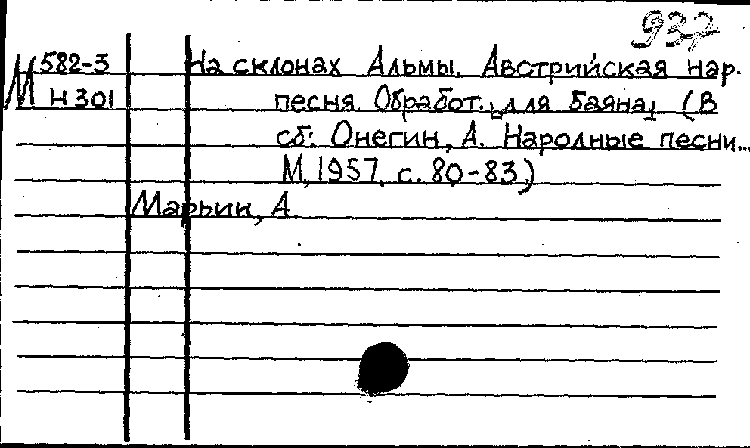 937
М 582-3 На склонах Альмы. Австрийская нар.
Н 301 песня. Обработ. [для баяна] (В
сб: Онегин, А. Народные песни...
М, 1957, с. 80-83)
Марьин, А.